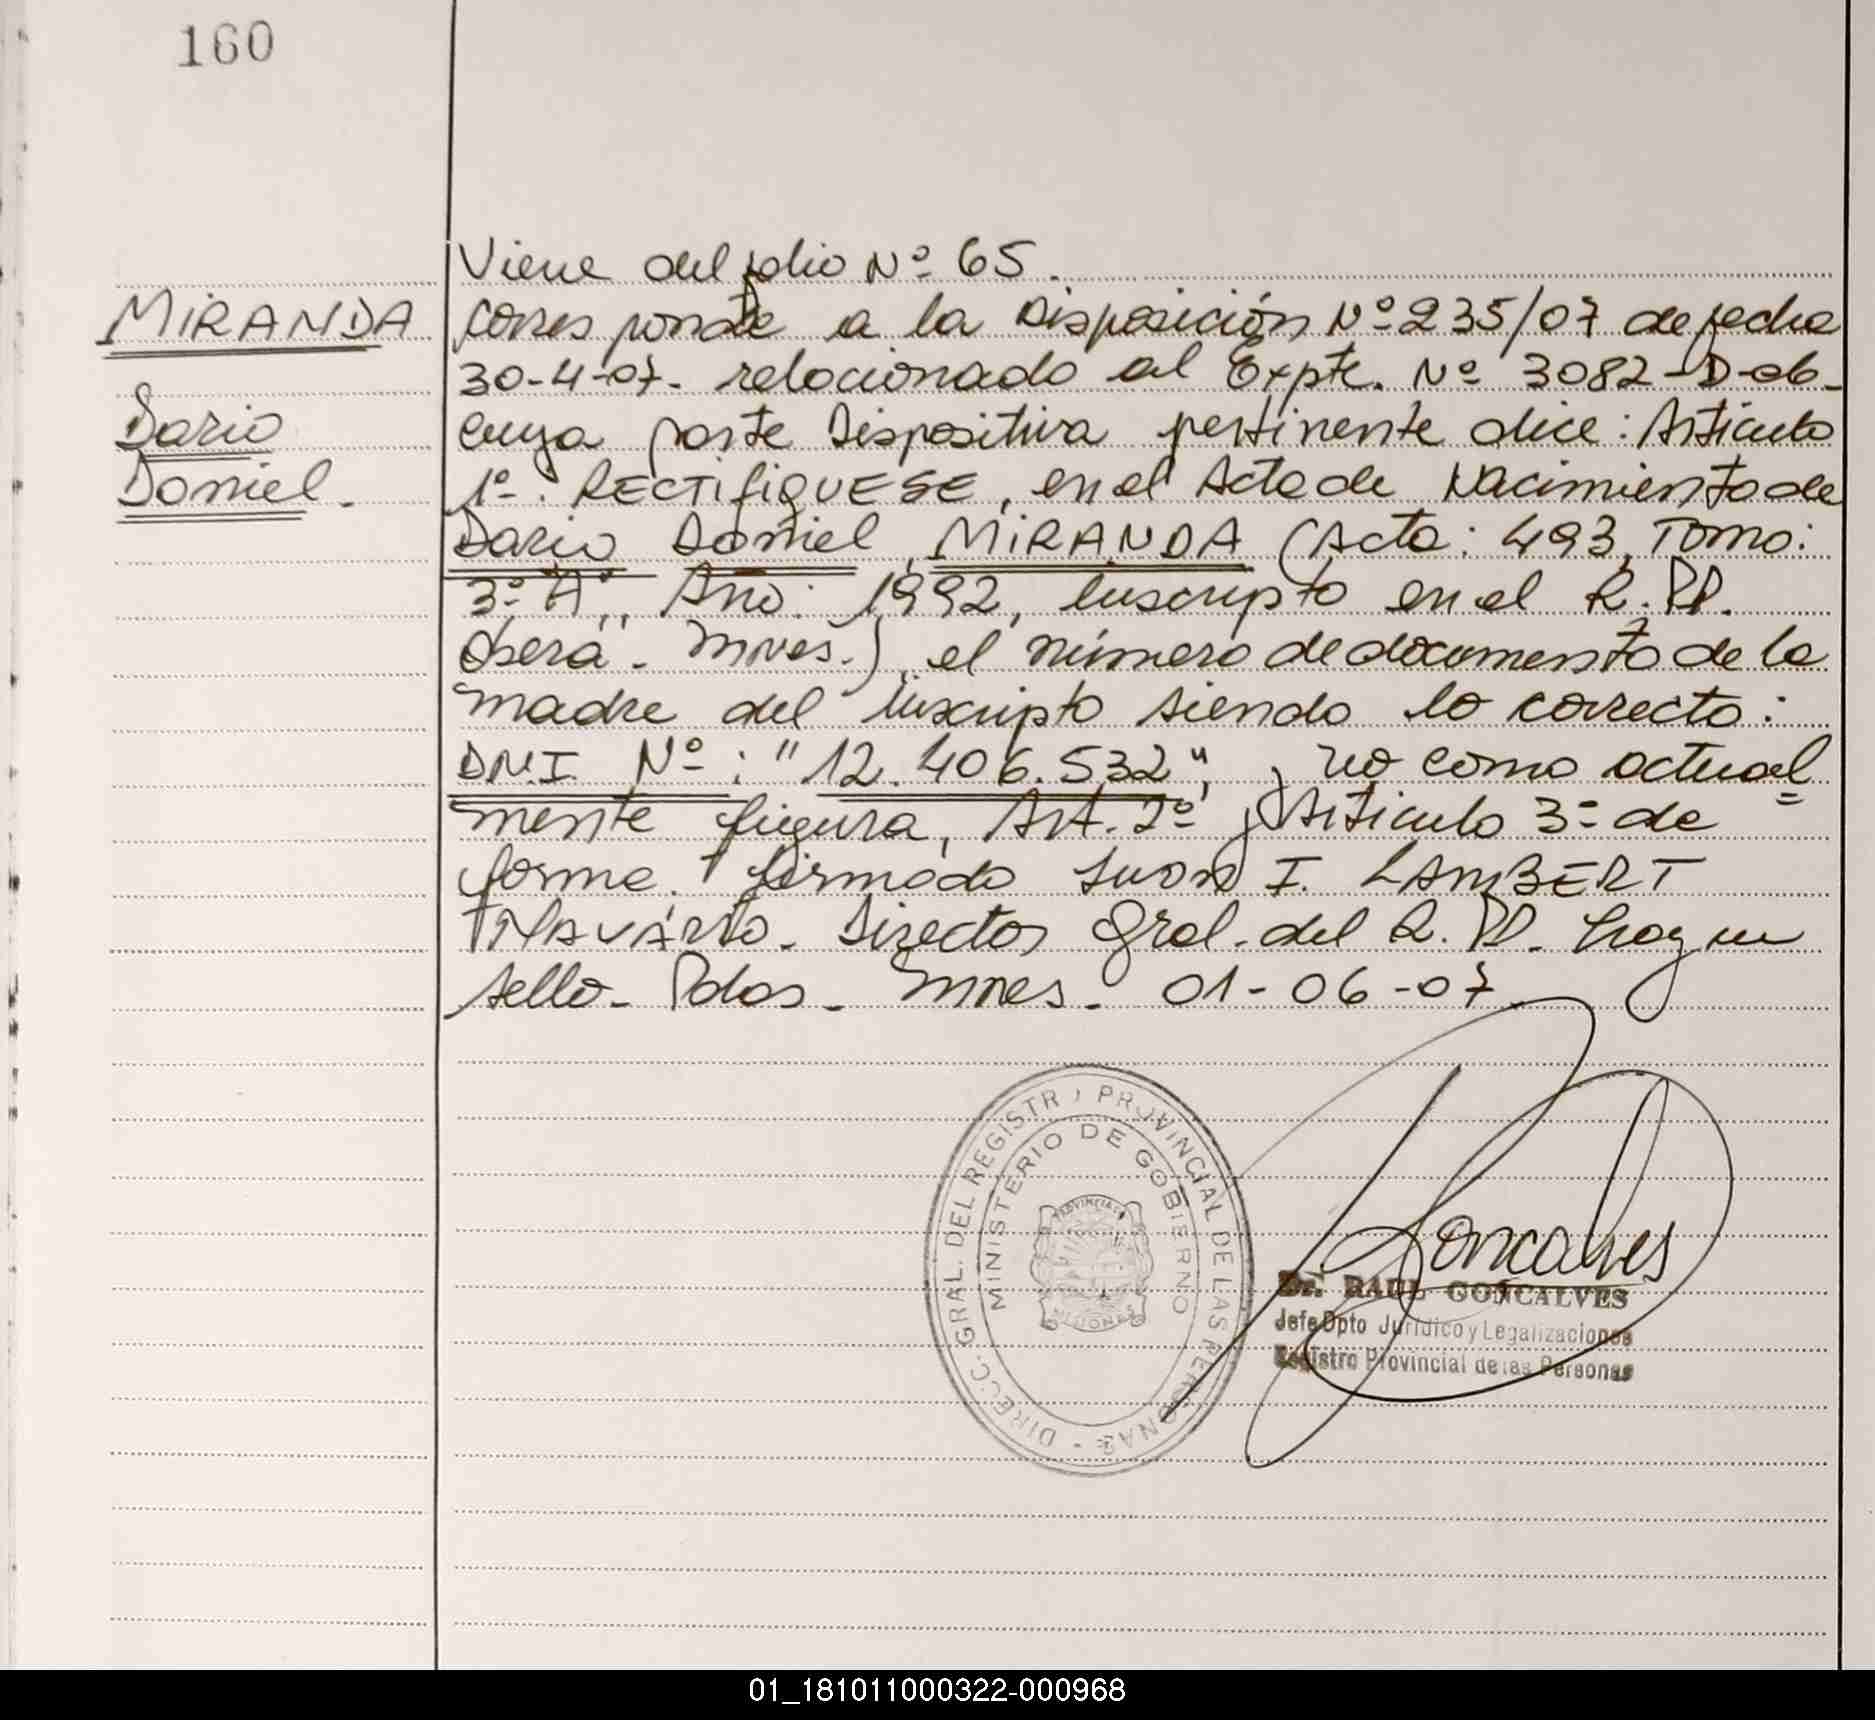 160
Viene del folio Nº 65.
MIRANDA
Dario
Daniel.
Corresponde a la Disposición Nº 235/07 de fecha
30-4-07- relacionado al Expte. Nº 3082-D-06-
cuya parte Dispositiva pertinente dice: Articulo
1º-. RECTIFIQUESE, en el Acta de Nacimiento de
Dario Daniel MIRANDA (Acta: 493, Tomo:
3º "A", Año: 1992, Inscripto en el R.PP.
Oberá- Mnes.), el número de documento de la
madre del Inscripto siendo lo correcto:
DNI Nº: "12.406.532", y no como actual=
mente figura, Art. 2º y Articulo 3º de
forma. firmado Juan I. LAMBERT
NAVARRO- Director Gral. del R.PP. hay un
sello- Pdas- Mnes- 01-06-07
DIRECC. GRAL. DEL REGISTRO PROVINCIAL DE LAS PERSONAS -
MINISTERIO DE GOBIERNO
PROVINCIA
MISIONES
Goncalves
Dr. RAUL GONCALVES
Jefe Dpto Jurídico y Legalizaciones
Registro Provincial de las Personas
01_181011000322-000968